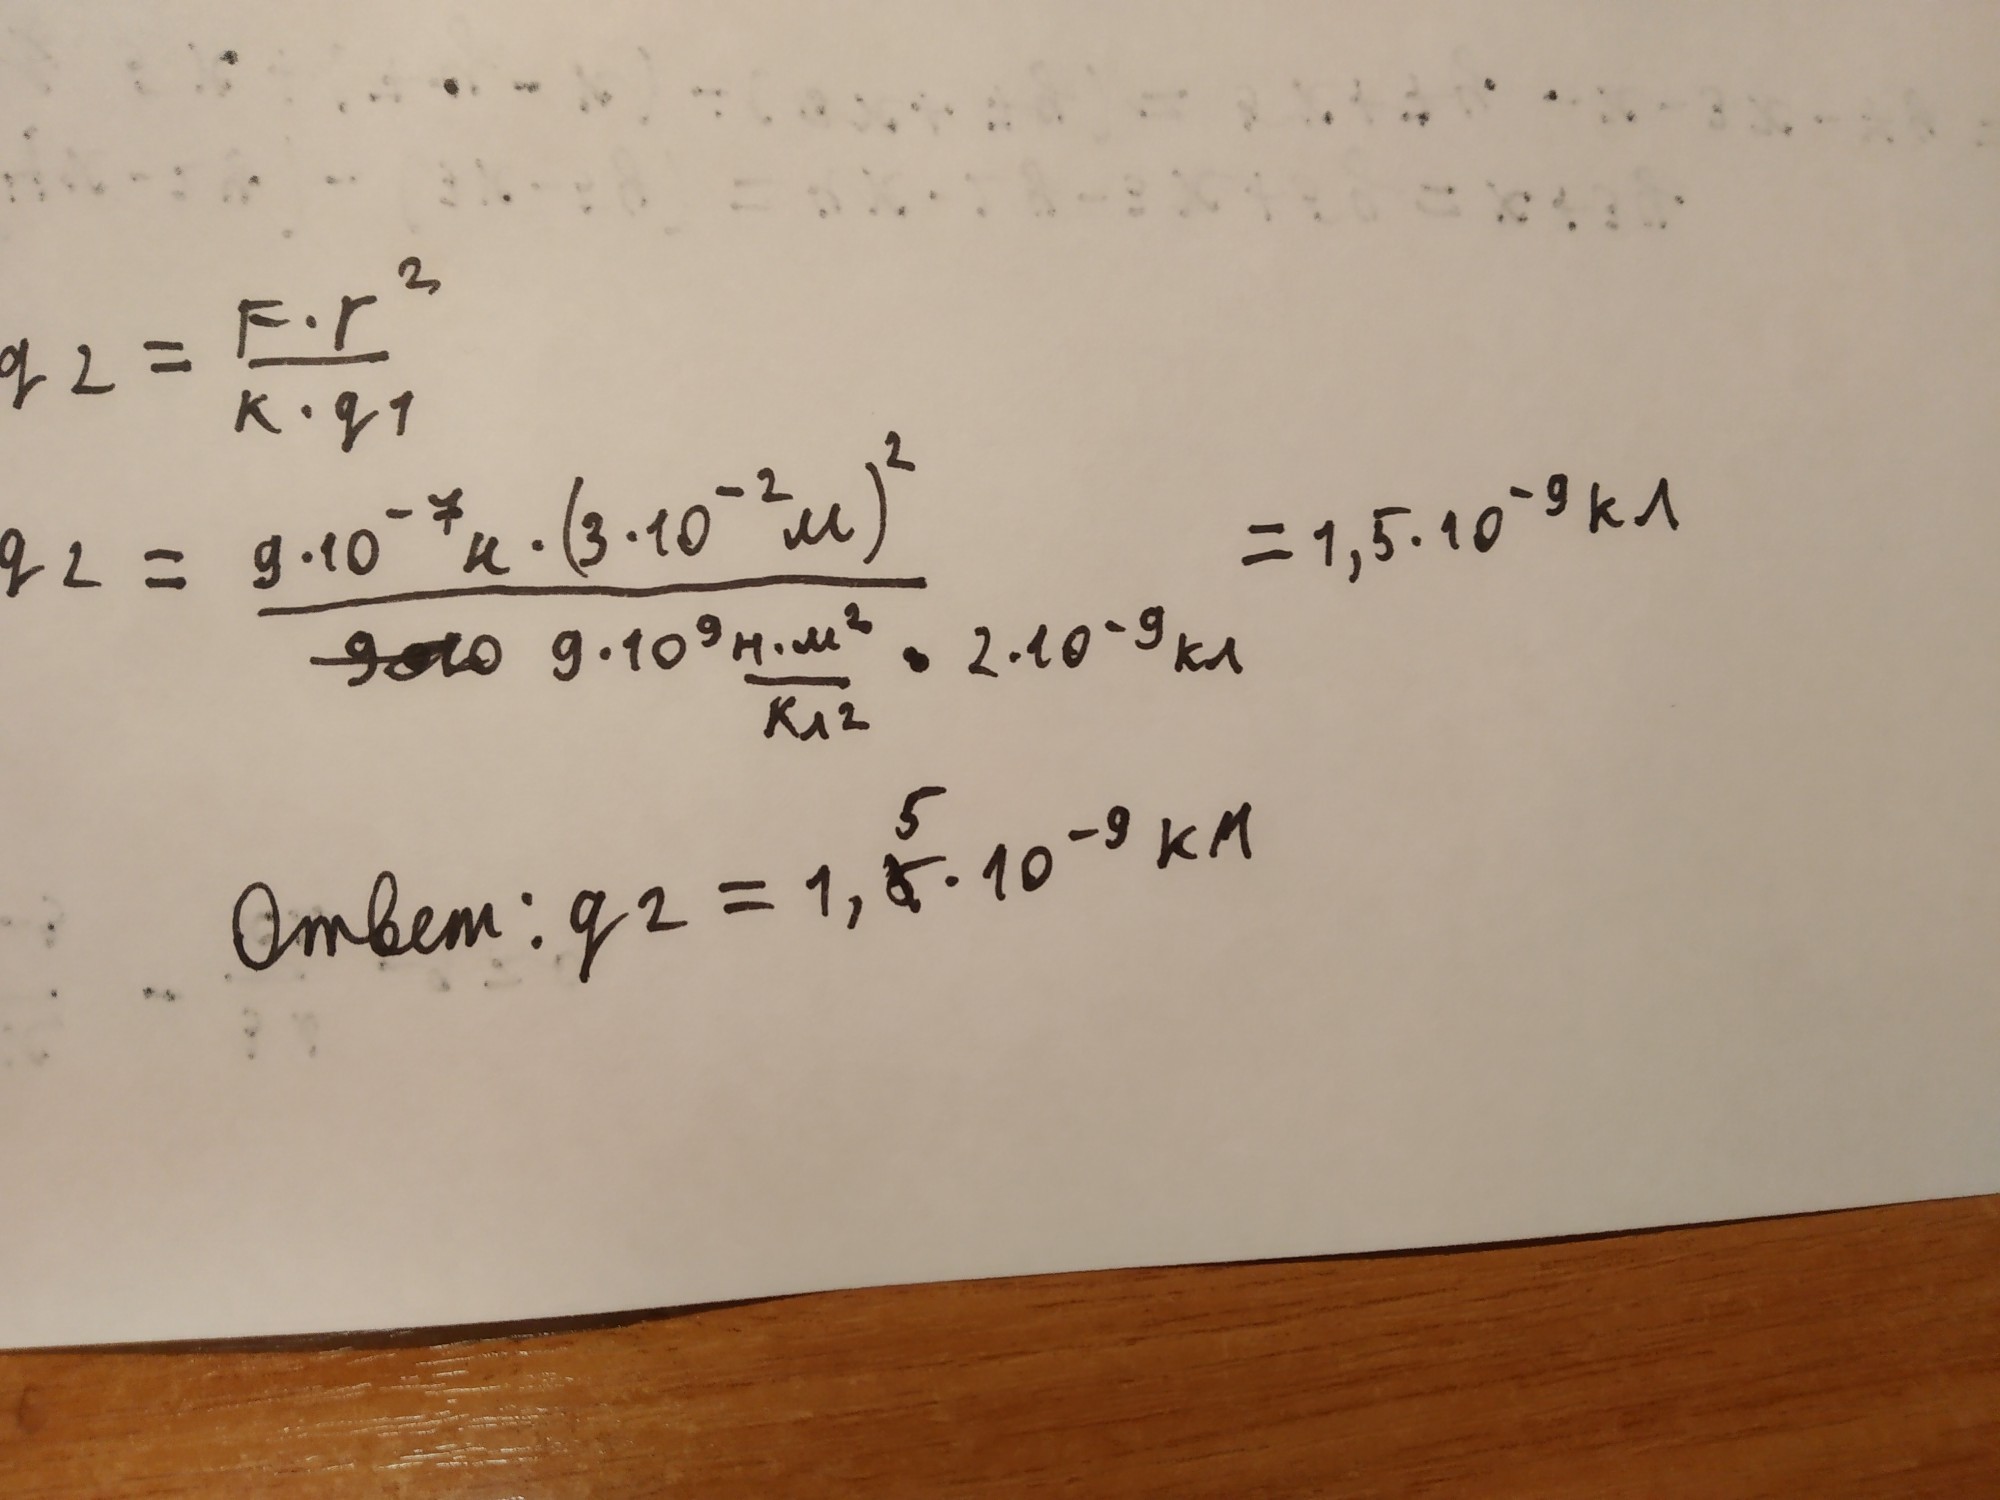 q2 = F·r² / к·q1
q2 = 9·10⁻⁷н·(3·10⁻²м)² / 9·10⁹ н·м²/кл² · 2·10⁻⁹кл = 1,5·10⁻⁹кл
Ответ: q2 = 1,5·10⁻⁹ кл